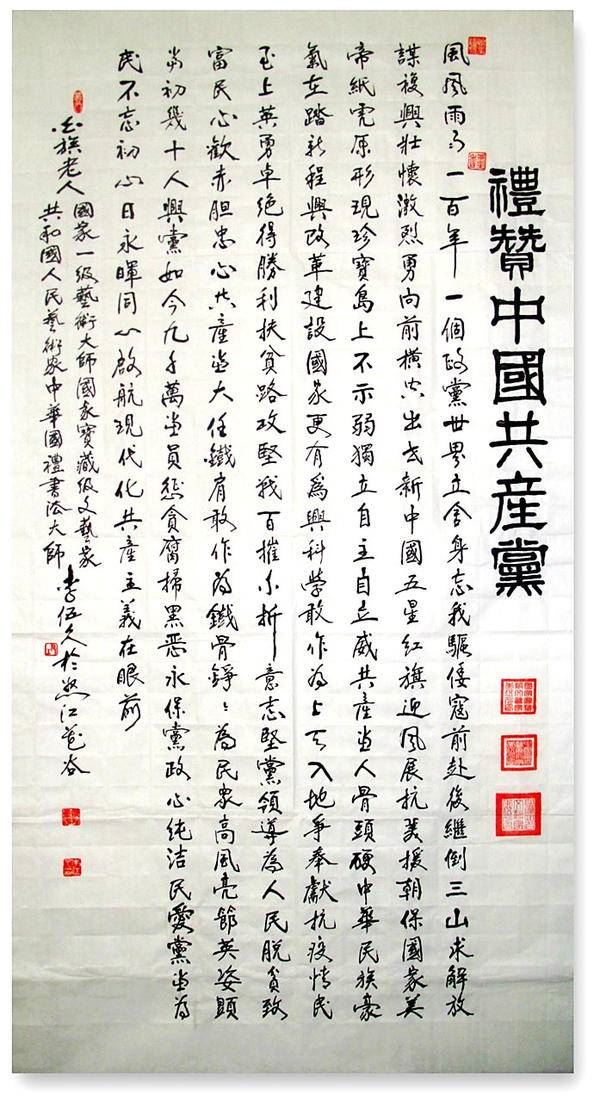 禮贊中國共產黨
風風雨雨一百年一個政黨世界立舍身忘我驅倭寇前赴後繼倒三山求解放
謀復興壯懷激烈勇向前橫空出世新中國五星紅旗迎風展抗美援朝保國家美
帝紙虎原形現珍寶島上不示弱獨立自主自立威共產黨人骨頭硬中華民族豪
氣在踏新程興改革建設國家更有為興科學敢作為上天入地爭奉獻抗疫情民
至上英勇卓絕得勝利扶貧路攻堅戰百摧不折意志堅黨領導為人民脫貧致
富民心歡赤胆忠心共產黨大任鐵肩敢作為鐵骨錚〻為民眾高風亮節英姿顯
當初幾十人興黨如今九千萬黨員懲貪腐掃黑惡永保黨政心純洁民愛黨黨為
民不忘初心日永暉同心啟航現代化共產主義在眼前
族老人
國家一級藝術大師國家寶藏級文藝家
共和國人民藝術家中華國禮書法大師
李伍久於怒江花谷